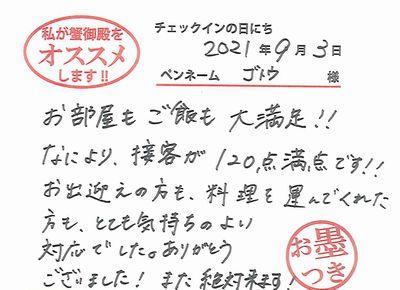 私が蟹御殿を
オススメ
します!!
チェックインの日にち
2021年9月3日
ペンネーム ゴトウ 様
お部屋もご飯も大満足!!
なにより、接客が120点満点です!!
お出迎えの方も、料理を運んでくれた
方も、とても気持ちのよい
対応でした。ありがとう
ございました!また絶対来ます!
お墨
つき